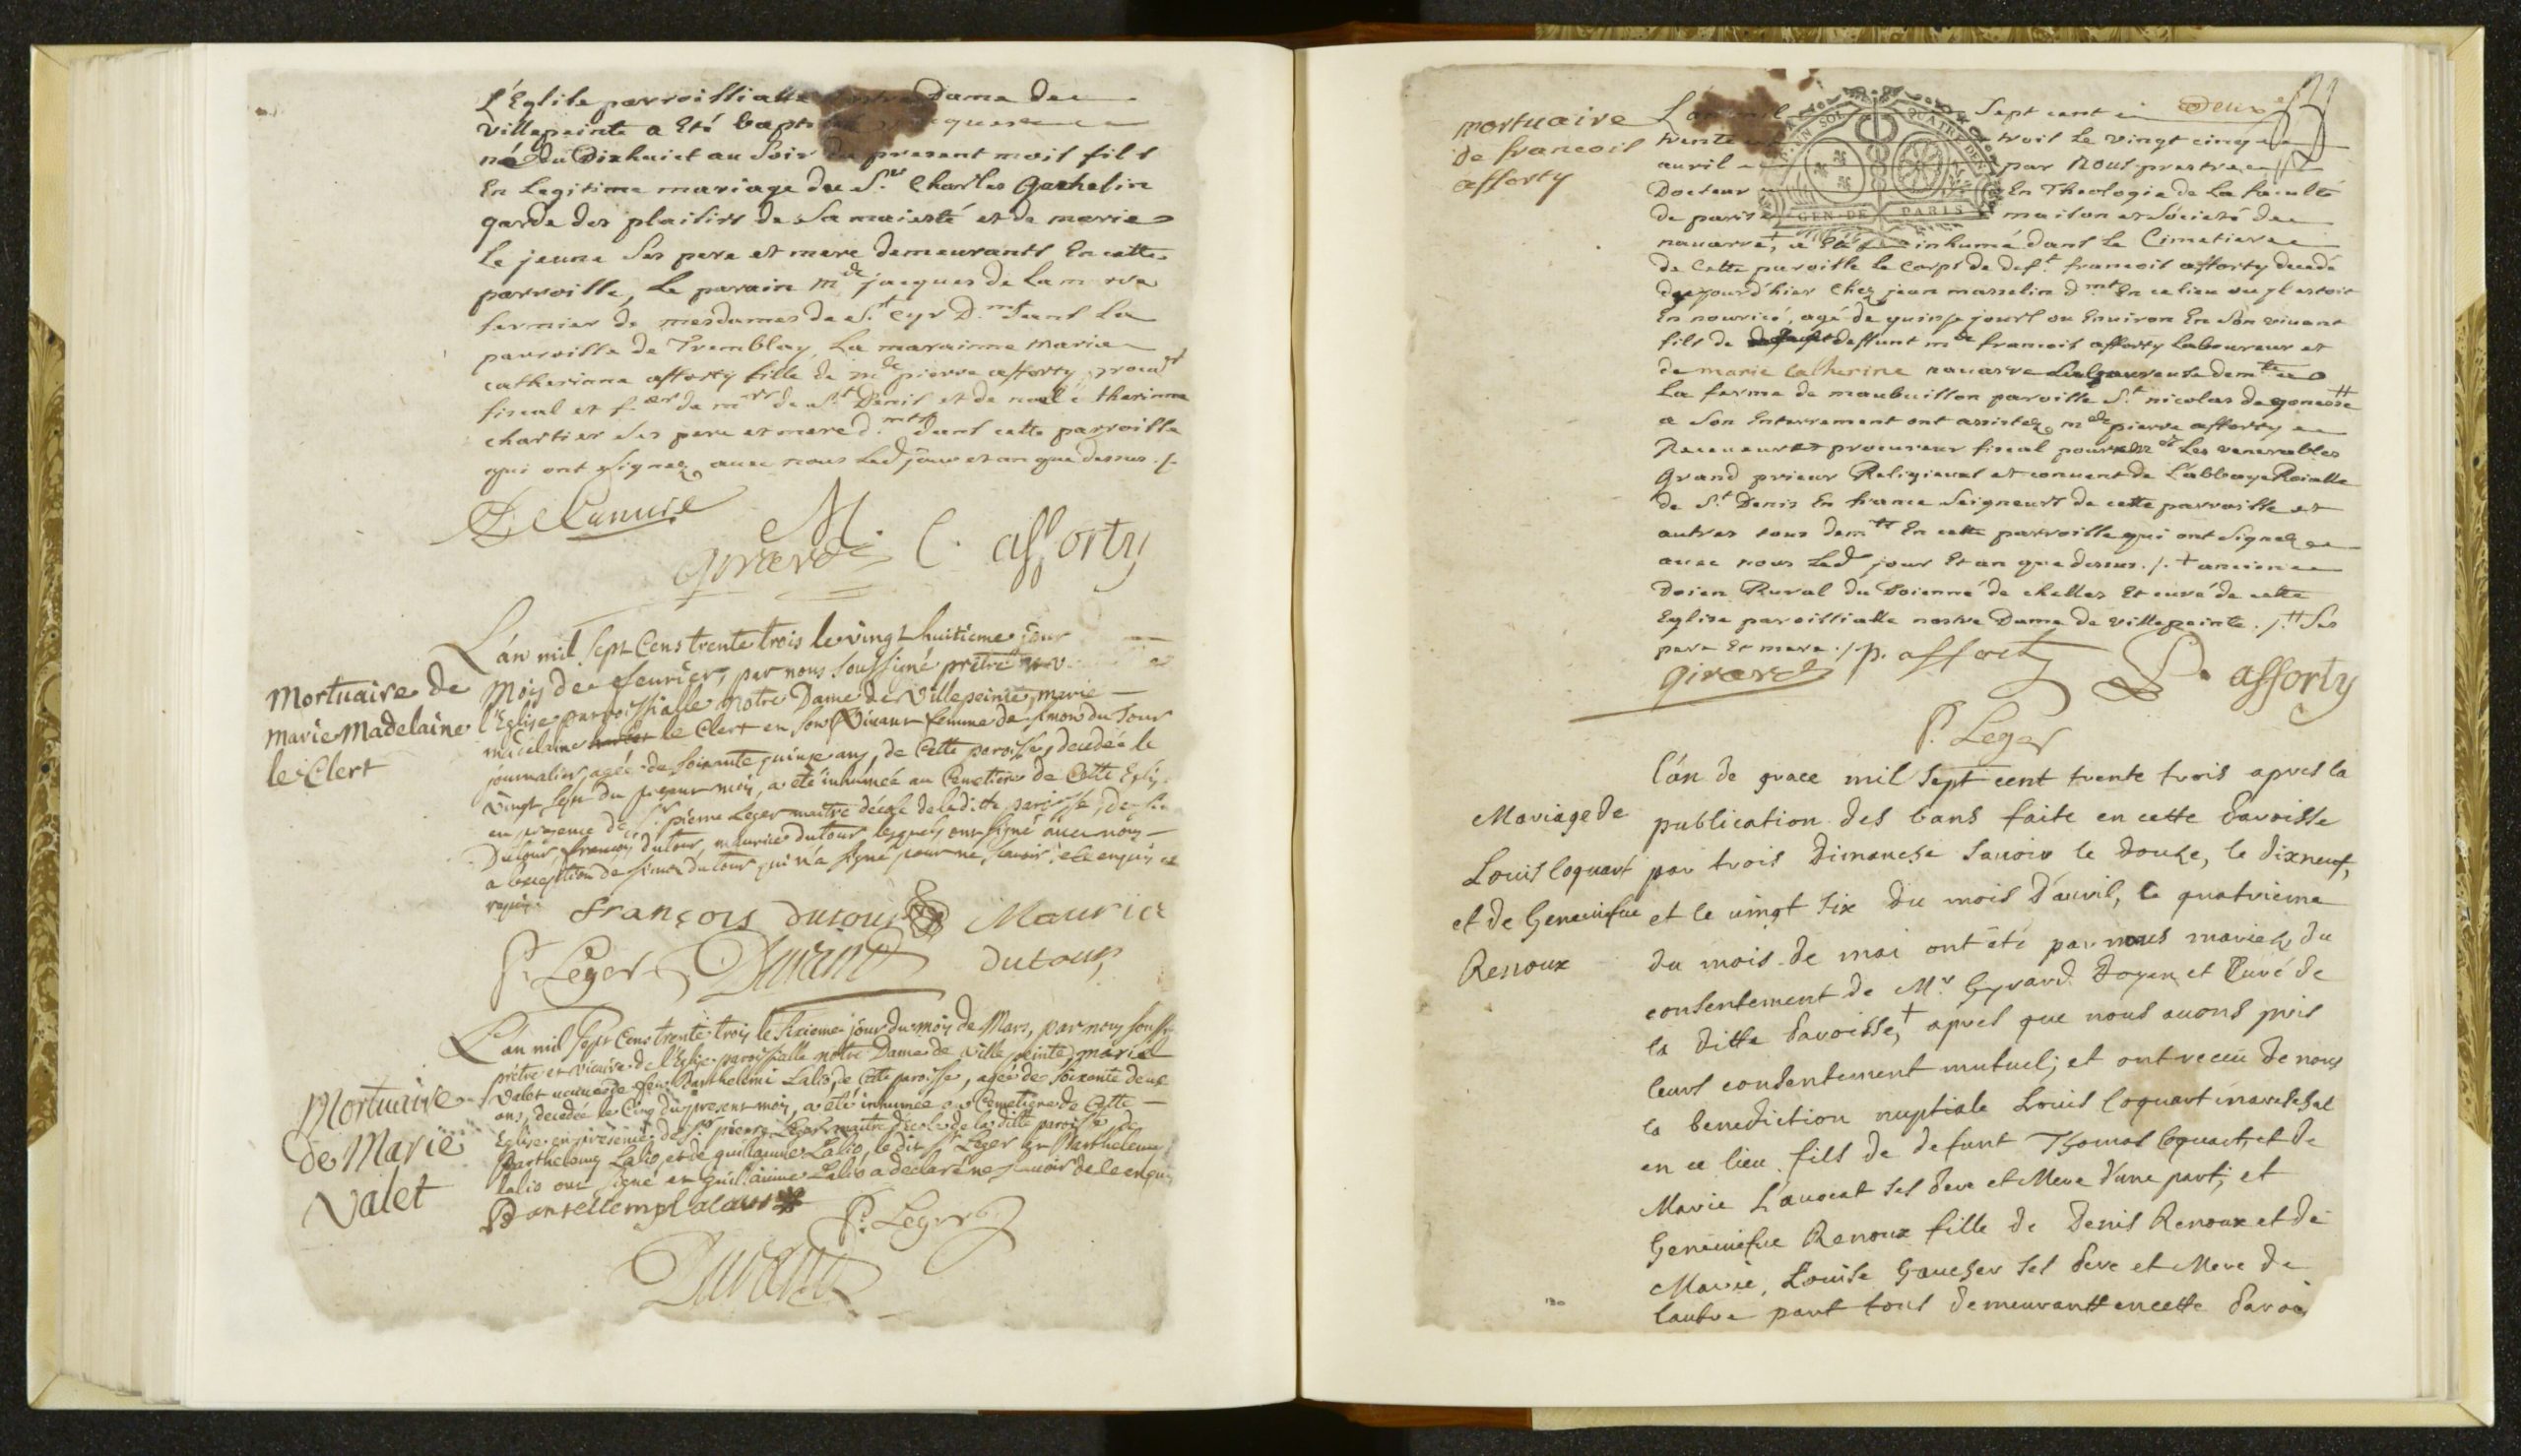 L'Eglise parroissialle nostre Dame de
villepeinte a eté bapt
né du Dixhuict au soir du present mois fils
En Legitime mariage de S.r Charles Gachelin
garde des plaisirs de sa maiesté et de marie
Le jeune ses pere et mere demeurants En cette
parroisse, Le parain m.de jacques de Lam
fermier de mesdames de S.t Cyr D.mt dans La
parroisse de Tremblay, La marainne marie
catherinne afforty fille de m.de pierre afforty
fiscal et f.er de m.rs de S.t Denis et de catherinne
chartier ses pere et mere d.mts dans cette parroisse
qui ont signez avec nous Led. jour et an que dessus ./.
M.
girard C. afforty
Mortuaire de
Marie Madelaine
le Clert
L'án mil sept Cens trente trois le vingt huitieme jour
Moy de feurier, par nous soussigné prêtre
l'Eglise parroissialle Notre Dame de Villepeinte, marie
madelaine le Clert en son Vivant femme de simon du tour
journalier, agée de soixante quinze ans, de Cette paroisse, decedée le
vingt sept du present mois, a eté inhumée au Cemetiere de Cette Egli
en presence de S.r pierre Leger maitre d'école de la ditte paroisse, de
Dutour, françois dutour, maurice dutour lesquels ont signé avec nous
a l'exception de simon dutour qui n'a signé pour ne sçavoir de ce enquis et
requis.
françois dutour Maurice
P. Leger Durand dutour
Mortuaire
de Marie
Valet
L'an mil sept Cens trente trois le sixieme jour du mois de Mars, par nous souss
prêtre et vicaire de l'Eglise paroissialle notre Dame de Ville peinte, marie
Valet veuve de feu Barthelemi Lalis, de Cette paroisse, agée de soixante deux
ans, decedée le Cinq du present mois, a eté inhumée au Cemetiere de Cette
Eglise en presence de S.r pierre Leger maitre d'école de la ditte paroisse de
Barthelemy Lalis, et de guillaume Lalis, le dit S.r Leger et Barthelemy
lalis ont signé et guillaume Lalis a declaré ne sçavoir de ce enquis
P. Leger
Durand
mortuaire
de francois
afforty
L'an mil Sept cent Deux
trente trois Le vingt cinq
auril par nous prestre
Docteur En Theologie de La faculté
de paris maison et Société de
nauarre,+ a été inhumé dans Le Cimetiere
de Cette paroisse Le corps de def.t francois afforty decedé
du jourd'hier chez jean masselin d.mt En ce lieu ou jl estoit
En nourice, agé de quinze jours ou Enuiron En son viuant
fils de deffunt m.de francois afforty Laboureur et
de marie Catherine nauarre dem.te
La ferme de maubuisson paroisse S.t nicolas de gonesse ++
a Son Enterrement ont assistez m.de pierre afforty
Receueur et procureur fiscal pour Les venerables
Grand prieur Religieux et conuent de L'abbaye Roialle
de S.t Denis En france Seigneurs de cette parroisse et
autres tous dem.ts En cette parroisse qui ont Signez
avec nous Led. jour Et an que dessus ./. + ancien
Doien Rural du Doienné de chelles Et curé de cette
Eglise paroissialle nostre Dame de villepeinte ./. ++ Ses
pere Et mere ./.
girard p. afforty P. afforty
P. Leger
Mariage de
Louis Coquart
et de Geneuiefue
Renoux
L'án de grace mil sept cent trente trois apres la
publication des bans faite en cette Paroisse
par trois Dimanche sauoir le douze, le dixneuf,
et le uingt six du mois d'auril, le quatrieme
du mois de mai ont été par nous mariez, du
consentement de M.r Gyrard Doyen et Curé de
la ditte Paroisse,+ apres que nous auons pris
leurs consentement mutuel, et ont receu de nous
la benediction nuptiale Louis Coquart mareschal
en ce lieu fils de defunt Thomas Coquart, et de
Marie L'auocat ses Pere et Mere d'une part, et
Geneuiefue Renoux fille de Denis Renoux et de
Marie, Louise Gaucher ses Pere et Mere de
l'autre part tous demeurantt en cette Paroi
GEN. DE PARIS